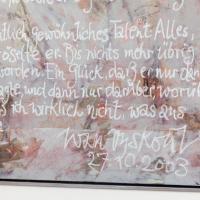 atlich gewöhnliches Talent. Alles,
röselte er. Bis nichts mehr übrig
worden. Ein Glück, daß er nur den
agte, und dann nur darüber, worüb
ß ich wirklich nicht, was aus
27.10.2003